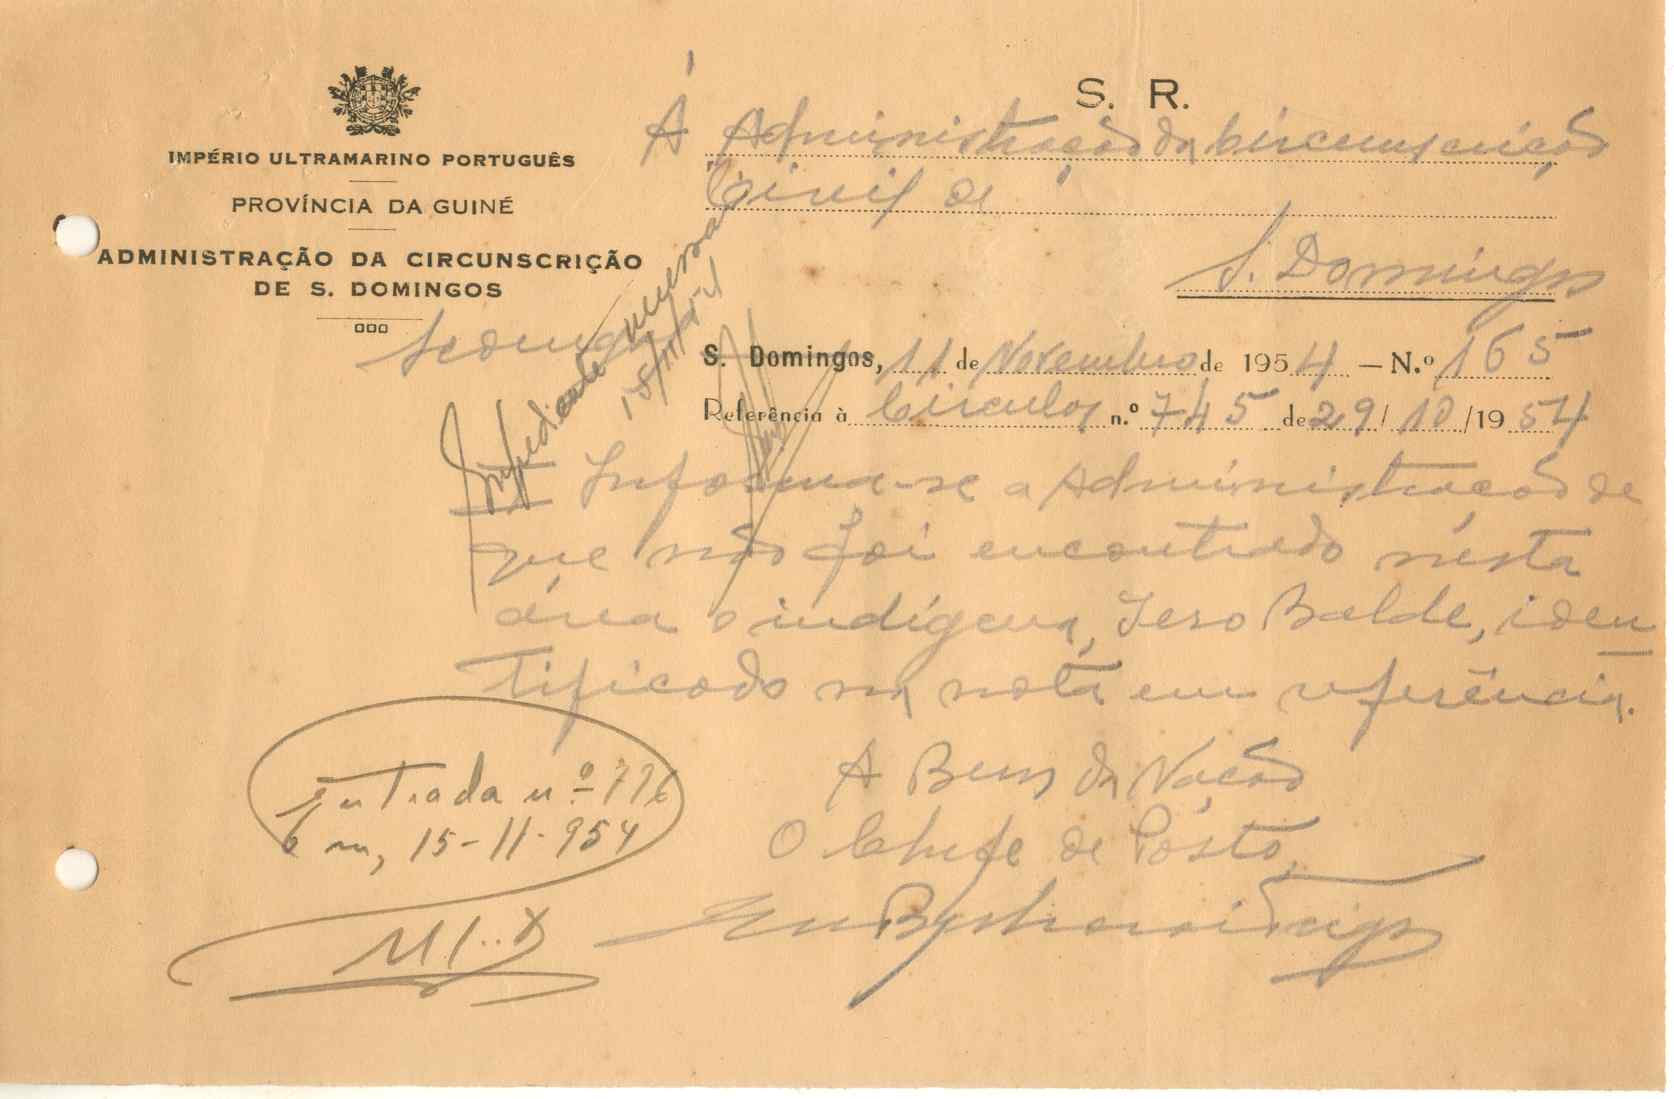 S. R.
IMPÉRIO ULTRAMARINO PORTUGUÊS
PROVÍNCIA DA GUINÉ
ADMINISTRAÇÃO DA CIRCUNSCRIÇÃO
DE S. DOMINGOS
ooo
Á Administração da Circunscrição
Civil de
S. Domingos
S. Domingos, 11 de Novembro de 1954 — N.º 165
Referência à Circular n.º 745 de 29/10/1954
Expediente
15/11/954
Informa-se a Administração de
que não foi encontrado nesta
área o indígena, Iero Balde, iden
tificado na nota em referência.
A Bem da Nação
O Chefe de Pôsto,
Entrada n.º 776
Em, 15-11-954